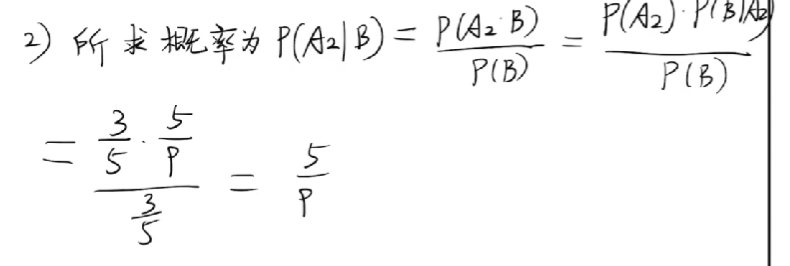 2) 所求概率为 P(A₂|B) = P(A₂B)/P(B) = P(A₂)·P(B|A₂)/P(B)
= (3/5 · 5/9)/(3/5) = 5/9